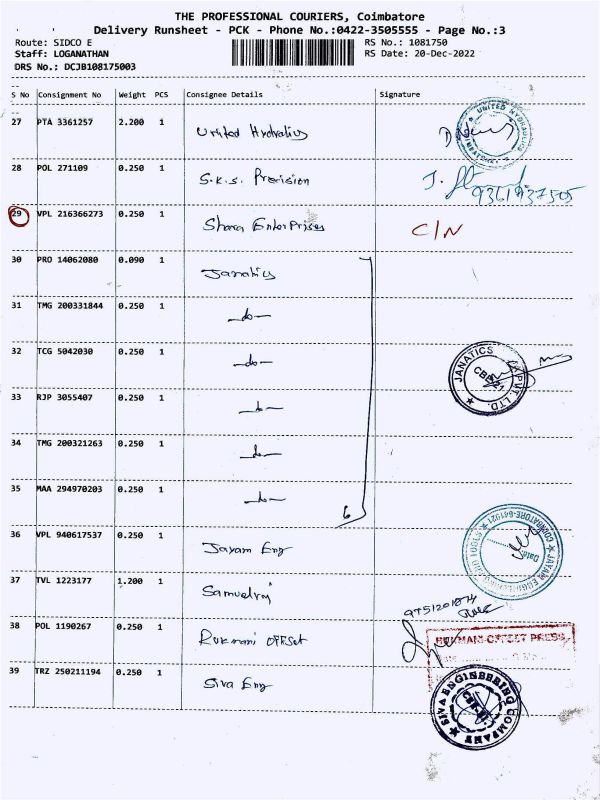 THE PROFESSIONAL COURIERS, Coimbatore
Delivery Runsheet - PCK - Phone No.:0422-3505555 - Page No.:3
Route: SIDCO E
RS No.: 1081750
Staff: LOGANATHAN
RS Date: 20-Dec-2022
DRS No.: DCJB108175003
S No Consignment No Weight PCS Consignee Details Signature
27 PTA 3361257 2.200 1 United Hydralics
UNITED HYDRAULICS
28 POL 271109 0.250 1 S.K.S. Precision
29 VPL 216366273 0.250 1 Shara EnterPrises C/N
30 PRO 14062080 0.090 1 Janatics
31 TMG 200331844 0.250 1 -do-
32 TCG 5042030 0.250 1 -do-
JANATICS (P) PVT. LTD.
CBE-21
33 RJP 3055407 0.250 1 -do-
34 TMG 200321263 0.250 1 -do-
35 MAA 294970203 0.250 1 -do-
6
36 VPL 940617537 0.250 1 Jayam Eng
Date
37 TVL 1223177 1.200 1 Samuelraj
38 POL 1190267 0.250 1 Rukmani OFFset
RUKMANI OFFSET PRESS
39 TRZ 250211194 0.250 1 Siva Eng
SIVA ENGINEERING COMPANY